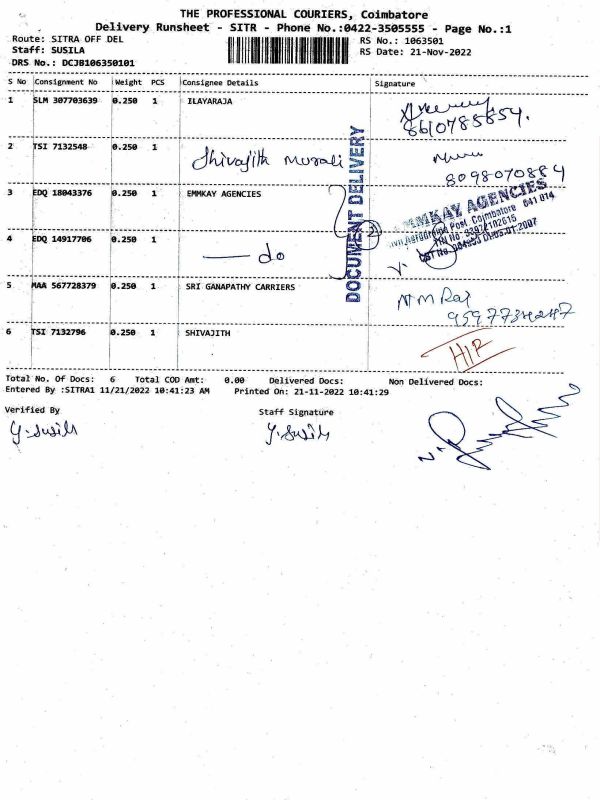 THE PROFESSIONAL COURIERS, Coimbatore
Delivery Runsheet - SITR - Phone No.:0422-3505555 - Page No.:1
Route: SITRA OFF DEL RS No.: 1063501
Staff: SUSILA RS Date: 21-Nov-2022
DRS No.: DCJB106350101
S No Consignment No Weight PCS Consignee Details Signature
1 SLM 307703639 0.250 1 ILAYARAJA
8610785854.
2 TSI 7132548 0.250 1 Shivajith Murali
8098070884
3 EDQ 18043376 0.250 1 EMMKAY AGENCIES
DOCUMENT DELIVERY
2
MMKAY AGENCIES
Post, Coimbatore 641 014
4 EDQ 14917706 0.250 1 — do
5 MAA 567728379 0.250 1 SRI GANAPATHY CARRIERS N M Raj
6 TSI 7132796 0.250 1 SHIVAJITH
Total No. Of Docs: 6 Total COD Amt: 0.00 Delivered Docs: Non Delivered Docs:
Entered By :SITRA1 11/21/2022 10:41:23 AM Printed On: 21-11-2022 10:41:29
Verified By Staff Signature
Y. Susila Y. Susila